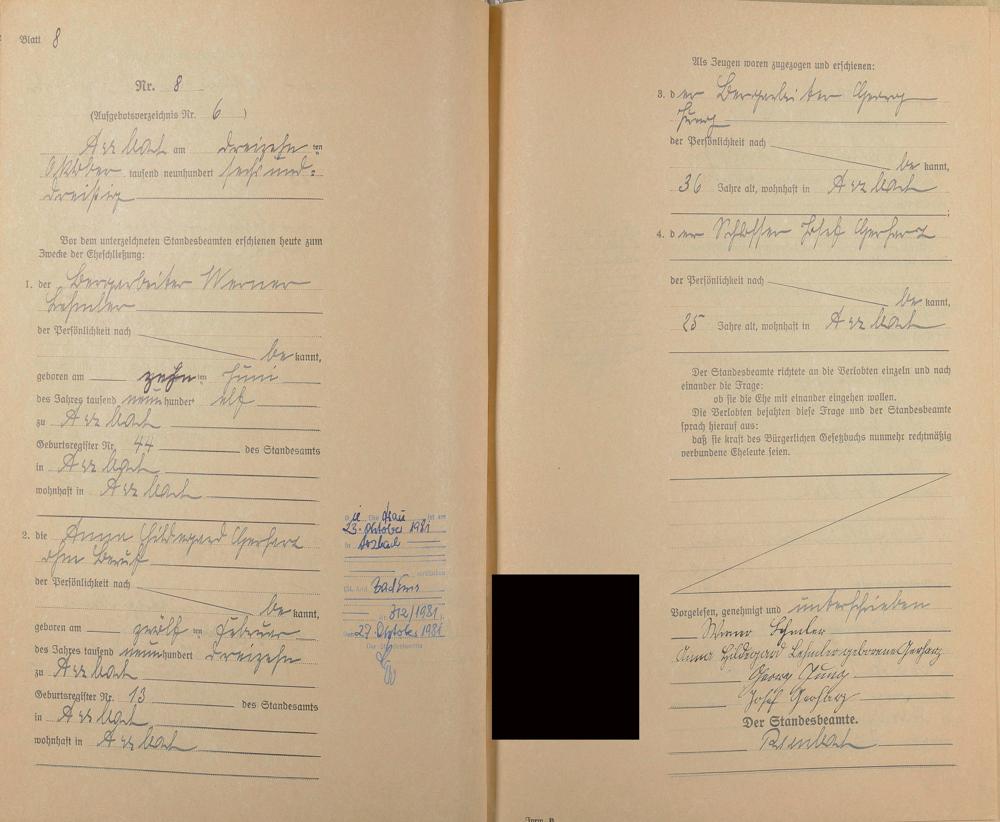 Blatt 8
Nr. 8
(Aufgebotsverzeichnis Nr. 6)
Arzbach am dreizehnten
Oktober tausend neunhundert sechsund=
dreißig
Vor dem unterzeichneten Standesbeamten erschienen heute zum
Zwecke der Eheschließung:
1. der Bergarbeiter Werner
Lehmler
der Persönlichkeit nach
be kannt,
geboren am zehnten Juni
des Jahres tausend neunhundert elf
zu Arzbach
Geburtsregister Nr. 44 des Standesamts
in Arzbach
wohnhaft in Arzbach
2. die Anna Hildegard Gerharz
ohne Beruf
der Persönlichkeit nach
be kannt,
geboren am zwölften Februar
des Jahres tausend neunhundert dreizehn
zu Arzbach
Geburtsregister Nr. 13 des Standesamts
in Arzbach
wohnhaft in Arzbach
Die Ehefrau ist am
23. Oktober 1981
in Arzbach
verstorben
Bad Ems
Nr. 312/1981
27. Oktob. 1981
Der Standesbeamte
Als Zeugen waren zugezogen und erschienen:
3. der Bergarbeiter Georg
Jung
der Persönlichkeit nach
be kannt,
36 Jahre alt, wohnhaft in Arzbach
4. der Schlosser Josef Gerharz
der Persönlichkeit nach
be kannt,
25 Jahre alt, wohnhaft in Arzbach
Der Standesbeamte richtete an die Verlobten einzeln und nach
einander die Frage:
ob sie die Ehe mit einander eingehen wollen.
Die Verlobten bejahten diese Frage und der Standesbeamte
sprach hierauf aus:
daß sie kraft des Bürgerlichen Gesetzbuchs nunmehr rechtmäßig
verbundene Eheleute seien.
Vorgelesen, genehmigt und unterschrieben
Werner Lehmler
Anna Hildegard Lehmler geborene Gerharz
Georg Jung
Josef Gerharz
Der Standesbeamte.